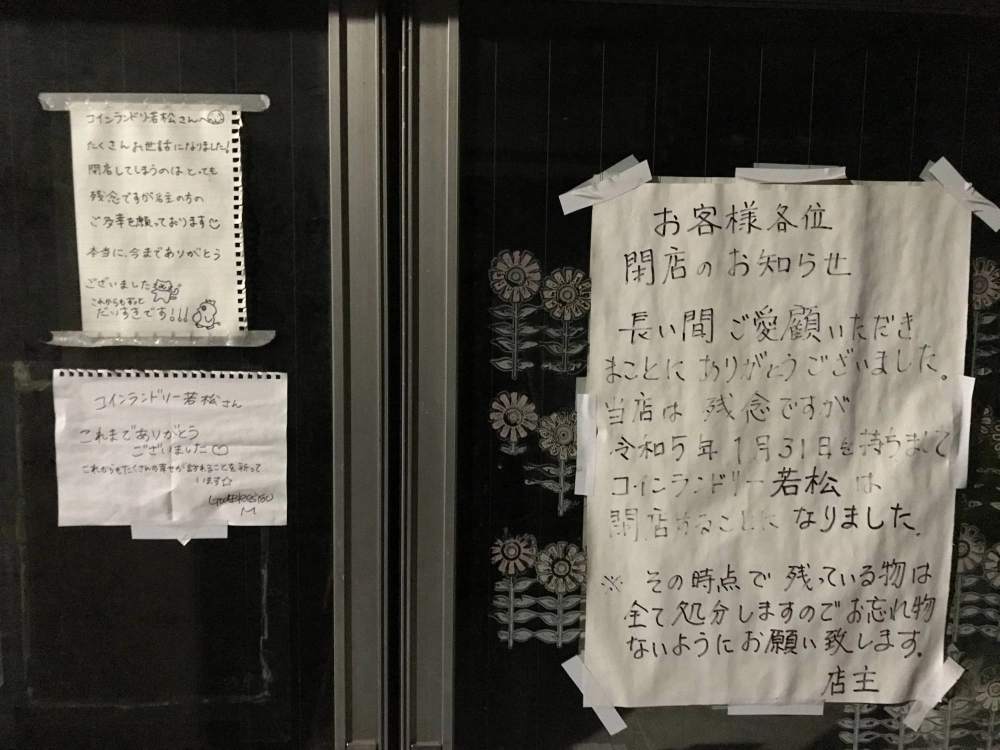 コインランドリ若松さんへ
たくさんお世話になりました!
閉店してしまうのはとっても
残念ですが店主の方の
ご多幸を願っております
本当に、今までありがとう
ございました
これからもずっと
だいすきです!!!
コインランドリー若松さん
これまでありがとう
ございました♡
これからもたくさんの幸せが訪れることを祈って
います☆
お客様各位
閉店のお知らせ
長い間ご愛顧いただき
まことにありがとうございました。
当店は残念ですが
令和5年1月31日を持ちまして
コインランドリー若松は
閉店することになりました。
※その時点で残っている物は
全て処分しますのでお忘れ物
ないようにお願い致します。
店主